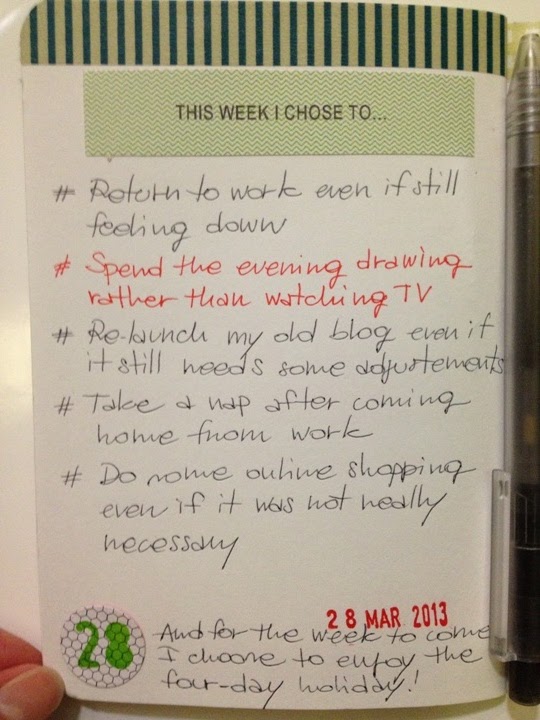 THIS WEEK I CHOSE TO...
# Return to work even if still
feeling down
# Spend the evening drawing
rather than watching TV
# Re-launch my old blog even if
it still needs some adjustements
# Take a nap after coming
home from work
# Do some online shopping
even if it was not really
necessary
28 MAR 2013
28
And for the week to come
I choose to enjoy the
four-day holiday!